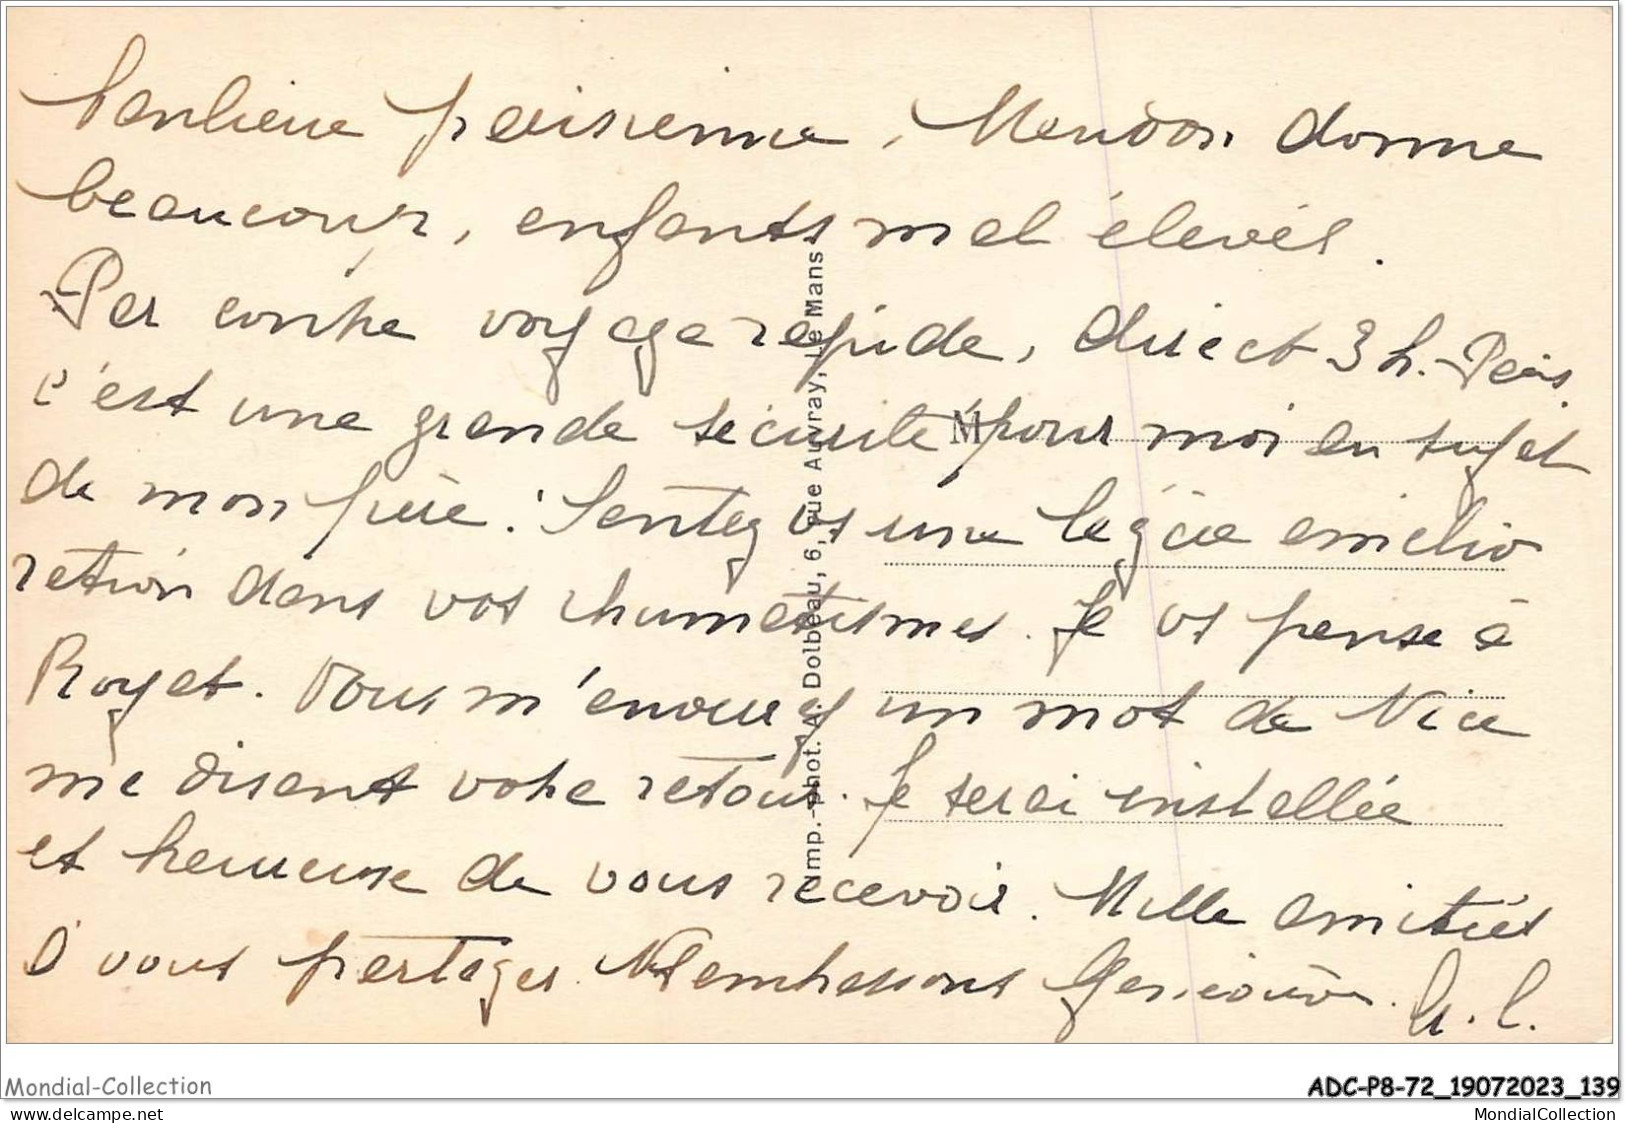 banlieue parisienne, Meudon donne
beaucoup, enfants mal élevés.
Par contre voyage rapide, direct 3 h. Paris.
c'est une grande sécurité pour moi au sujet
de mon père. Sentez vs une légère amélio
ration dans vos rhumatismes. Je vs pense à
Royat. Vous m'enverrez un mot de Nice
me disant votre retour. Je serai installée
et heureuse de vous recevoir. Mille amitiés
à vous partager. Geneviève.
M
Imp.-phot. A. Dolbeau, 6, rue Auvray, Le Mans
Mondial-Collection
ADC-P8-72_19072023_139
www.delcampe.net
MondialCollection